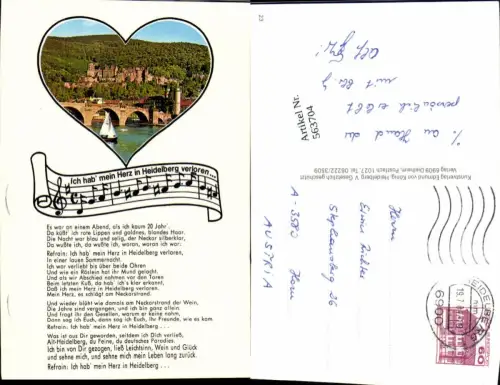 Ich hab' mein Herz in Heidelberg verloren...
Es war an einem Abend, als ich kaum 20 Jahr'.
Da küßt' ich rote Lippen und goldnes, blondes Haar.
Die Nacht war blau und selig, der Neckar silberklar,
Da wußte ich, da wußte ich, woran, woran ich war:
Refrain: Ich hab' mein Herz in Heidelberg verloren,
In einer lauen Sommernacht.
Ich war verliebt bis über beide Ohren
Und wie ein Röslein hat ihr Mund gelacht.
Und als wir Abschied nahmen vor den Toren
Beim letzten Kuß, da hab' ich's klar erkannt,
Daß ich mein Herz in Heidelberg verloren,
Mein Herz, es schlägt am Neckarstrand.
Und wieder blüht wie damals am Neckarstrand der Wein,
Die Jahre sind vergangen, und ich bin ganz allein.
Und fragt ihr den Gesellen, warum er keine nahm,
Dann sag ich Euch, dann sag ich Euch, ihr Freunde, wie es kam
Refrain: Ich hab' mein Herz in Heidelberg . . .
Was ist aus Dir geworden, seitdem ich Dich verließ,
Alt-Heidelberg, du Feine, du deutsches Paradies.
Ich bin von Dir gezogen, ließ Leichtsinn, Wein und Glück
und sehne mich, und sehne mich mein Leben lang zurück.
Refrain: Ich hab' mein Herz in Heidelberg . . .
Artikel Nr.
563704
Kunstverlag Edmund von König, Heidelberg
Herrn
Stephansberg 36
A-3580 Horn
AUSTRIA
HEIDELBERG
6900
60